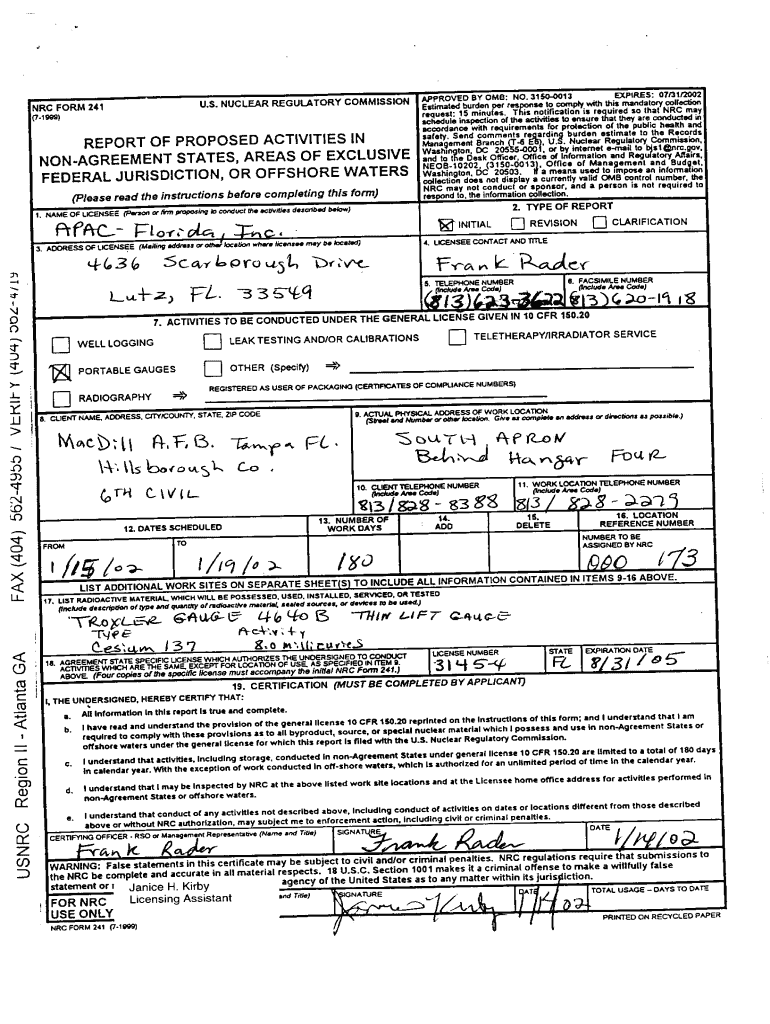 NRC FORM 241
(7-1999)
U.S. NUCLEAR REGULATORY COMMISSION
REPORT OF PROPOSED ACTIVITIES IN
NON-AGREEMENT STATES, AREAS OF EXCLUSIVE
FEDERAL JURISDICTION, OR OFFSHORE WATERS
(Please read the instructions before completing this form)
APPROVED BY OMB: NO. 3150-0013 EXPIRES: 07/31/2002
Estimated burden per response to comply with this mandatory collection
request: 15 minutes. This notification is required so that NRC may
schedule inspection of the activities to ensure that they are conducted in
accordance with requirements for protection of the public health and
safety. Send comments regarding burden estimate to the Records
Management Branch (T-6 E6), U.S. Nuclear Regulatory Commission,
Washington, DC 20555-0001, or by internet e-mail to bjs1@nrc.gov,
and to the Desk Officer, Office of Information and Regulatory Affairs,
NEOB-10202, (3150-0013), Office of Management and Budget,
Washington, DC 20503. If a means used to impose an information
collection does not display a currently valid OMB control number, the
NRC may not conduct or sponsor, and a person is not required to
respond to, the information collection.
1. NAME OF LICENSEE (Person or firm proposing to conduct the activities described below)
APAC-Florida, Inc.
2. TYPE OF REPORT
INITIAL REVISION CLARIFICATION
3. ADDRESS OF LICENSEE (Mailing address or other location where licensee may be located)
4636 Scarborough Drive
Lutz, FL. 33549
4. LICENSEE CONTACT AND TITLE
Frank Rader
5. TELEPHONE NUMBER
(Include Area Code)
(813)623-3622
6. FACSIMILE NUMBER
(Include Area Code)
(813)620-1918
7. ACTIVITIES TO BE CONDUCTED UNDER THE GENERAL LICENSE GIVEN IN 10 CFR 150.20
WELL LOGGING LEAK TESTING AND/OR CALIBRATIONS TELETHERAPY/IRRADIATOR SERVICE
PORTABLE GAUGES OTHER (Specify)
RADIOGRAPHY REGISTERED AS USER OF PACKAGING (CERTIFICATES OF COMPLIANCE NUMBERS)
8. CLIENT NAME, ADDRESS, CITY/COUNTY, STATE, ZIP CODE
MacDill A.F.B. Tampa FL.
Hillsborough Co.
6TH CIVIL
9. ACTUAL PHYSICAL ADDRESS OF WORK LOCATION
(Street and Number or other location. Give as complete an address or directions as possible.)
SOUTH APRON
Behind Hangar FOUR
10. CLIENT TELEPHONE NUMBER
(Include Area Code)
813/828-8388
11. WORK LOCATION TELEPHONE NUMBER
(Include Area Code)
813/ 828-2279
12. DATES SCHEDULED
13. NUMBER OF
WORK DAYS
14.
ADD
15.
DELETE
16. LOCATION
REFERENCE NUMBER
FROM
1/15/02
TO
1/19/02
180
NUMBER TO BE
ASSIGNED BY NRC
000 173
LIST ADDITIONAL WORK SITES ON SEPARATE SHEET(S) TO INCLUDE ALL INFORMATION CONTAINED IN ITEMS 9-16 ABOVE.
17. LIST RADIOACTIVE MATERIAL, WHICH WILL BE POSSESSED, USED, INSTALLED, SERVICED, OR TESTED
(Include description of type and quantity of radioactive material, sealed sources, or devices to be used.)
TROXLER GAUGE 4640B THIN LIFT GAUGE
TYPE Activity
Cesium 137 8.0 millicuries
18. AGREEMENT STATE SPECIFIC LICENSE WHICH AUTHORIZES THE UNDERSIGNED TO CONDUCT
ACTIVITIES WHICH ARE THE SAME, EXCEPT FOR LOCATION OF USE, AS SPECIFIED IN ITEM 9.
ABOVE. (Four copies of the specific license must accompany the initial NRC Form 241.)
LICENSE NUMBER
3145-4
STATE
FL
EXPIRATION DATE
8/31/05
19. CERTIFICATION (MUST BE COMPLETED BY APPLICANT)
I, THE UNDERSIGNED, HEREBY CERTIFY THAT:
a. All information in this report is true and complete.
b. I have read and understand the provision of the general license 10 CFR 150.20 reprinted on the instructions of this form; and I understand that I am
required to comply with these provisions as to all byproduct, source, or special nuclear material which I possess and use in non-Agreement States or
offshore waters under the general license for which this report is filed with the U.S. Nuclear Regulatory Commission.
c. I understand that activities, including storage, conducted in non-Agreement States under general license 10 CFR 150.20 are limited to a total of 180 days
in calendar year. With the exception of work conducted in off-shore waters, which is authorized for an unlimited period of time in the calendar year.
d. I understand that I may be inspected by NRC at the above listed work site locations and at the Licensee home office address for activities performed in
non-Agreement States or offshore waters.
e. I understand that conduct of any activities not described above, including conduct of activities on dates or locations different from those described
above or without NRC authorization, may subject me to enforcement action, including civil or criminal penalties.
CERTIFYING OFFICER - RSO or Management Representative (Name and Title)
Frank Rader
SIGNATURE
Frank Rader
DATE
1/14/02
WARNING: False statements in this certificate may be subject to civil and/or criminal penalties. NRC regulations require that submissions to
the NRC be complete and accurate in all material respects. 18 U.S.C. Section 1001 makes it a criminal offense to make a willfully false
statement or agency of the United States as to any matter within its jurisdiction.
FOR NRC
USE ONLY
Janice H. Kirby
Licensing Assistant
and Title)
SIGNATURE
DATE
TOTAL USAGE - DAYS TO DATE
NRC FORM 241 (7-1999)
PRINTED ON RECYCLED PAPER
USNRC Region II - Atlanta GA FAX (404) 562-4955 / VERIFY (404) 562-4719